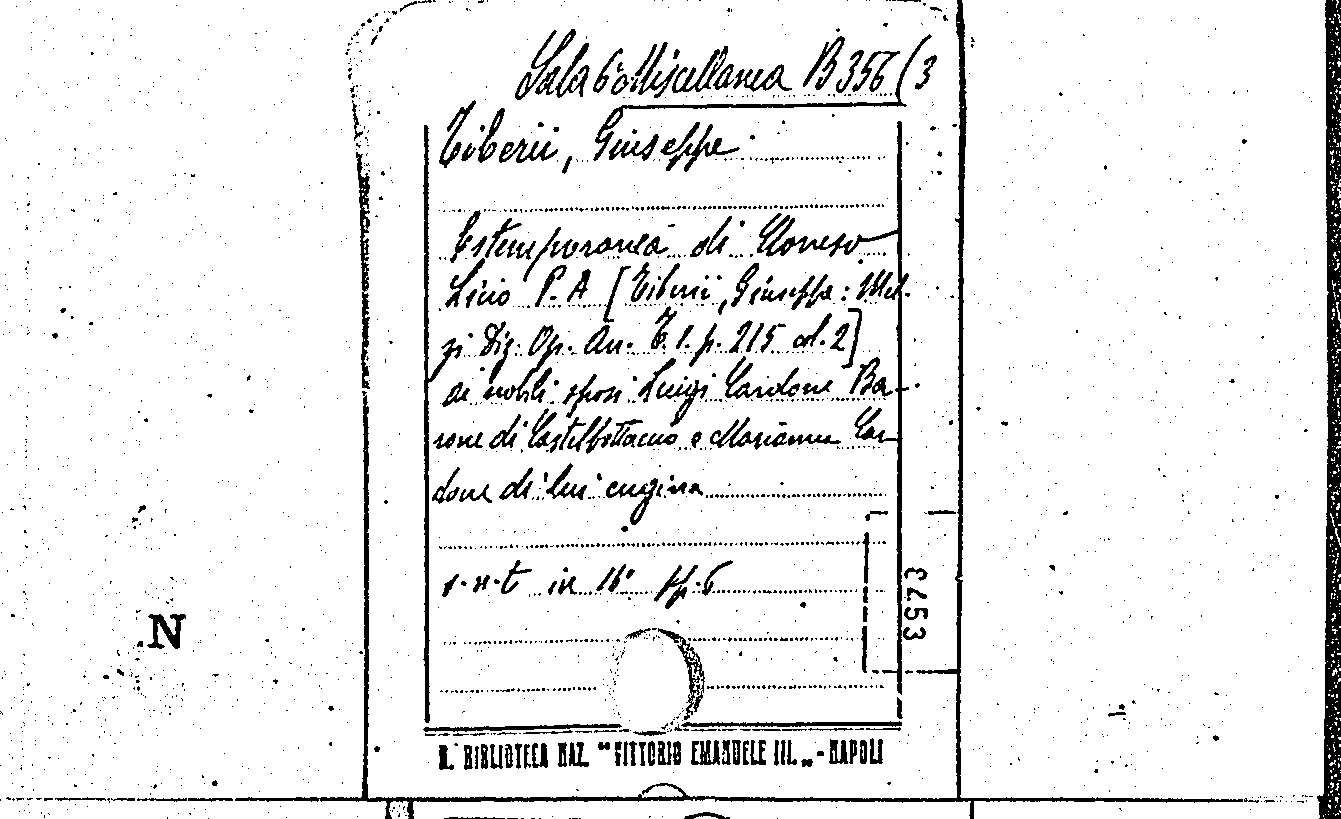 Sala 6ª Miscellanea B 356 (3
Tiberii, Giuseppe
Estemporanea di Cloneso
Licio P. A [Tiberii, Giuseppe: Mel-
zi Diz. Op. An. T. 1. p. 215 col. 2]
ai nobili sposi Luigi Cardone Ba-
rone di Castelbottaccio e Marianna Car-
done di lui cugina
s.n.t in 16° pp. 6
3753
N
R. BIBLIOTECA NAZ. "VITTORIO EMANUELE III. „ - NAPOLI